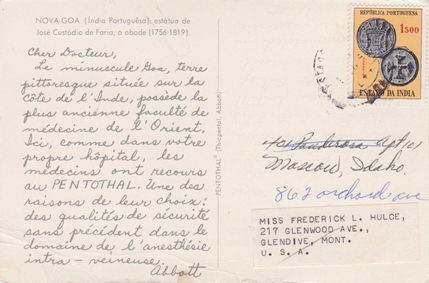 NOVA-GOA (Índia Portuguêsa); estátua de
José Custódio de Faria, o abade (1756-1819).
Cher Docteur,
Le minuscule Goa, terre
pittoresque située sur la
côte de l'Inde, possède la
plus ancienne faculté de
médecine de l'Orient.
Ici, comme dans votre
propre hôpital, les
médecins ont recours
au PENTOTHAL. Une des
raisons de leur choix:
des qualités de sécurité
sans précédent dans le
domaine de l'anesthésie
intra-veineuse.
Abbott
PENTOTHAL® (Thiopental, Abbott)
REPÚBLICA PORTUGUESA
1$00
ESTADO DA INDIA
Apt 101
Moscow, Idaho.
862 orchard ave
MISS FREDERICK L. HULCE,
217 GLENWOOD AVE.,
GLENDIVE, MONT.
U. S. A.